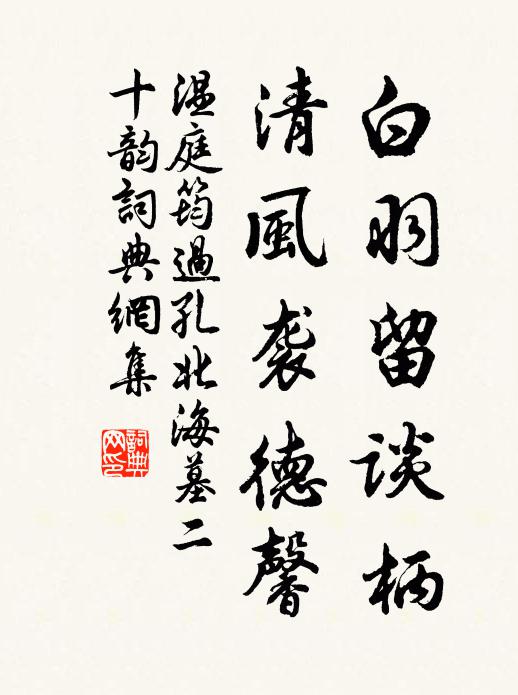 白羽留谈柄
清風袭德馨
温庭筠過孔北海墓二
十韵詞典網集
詞典
网印